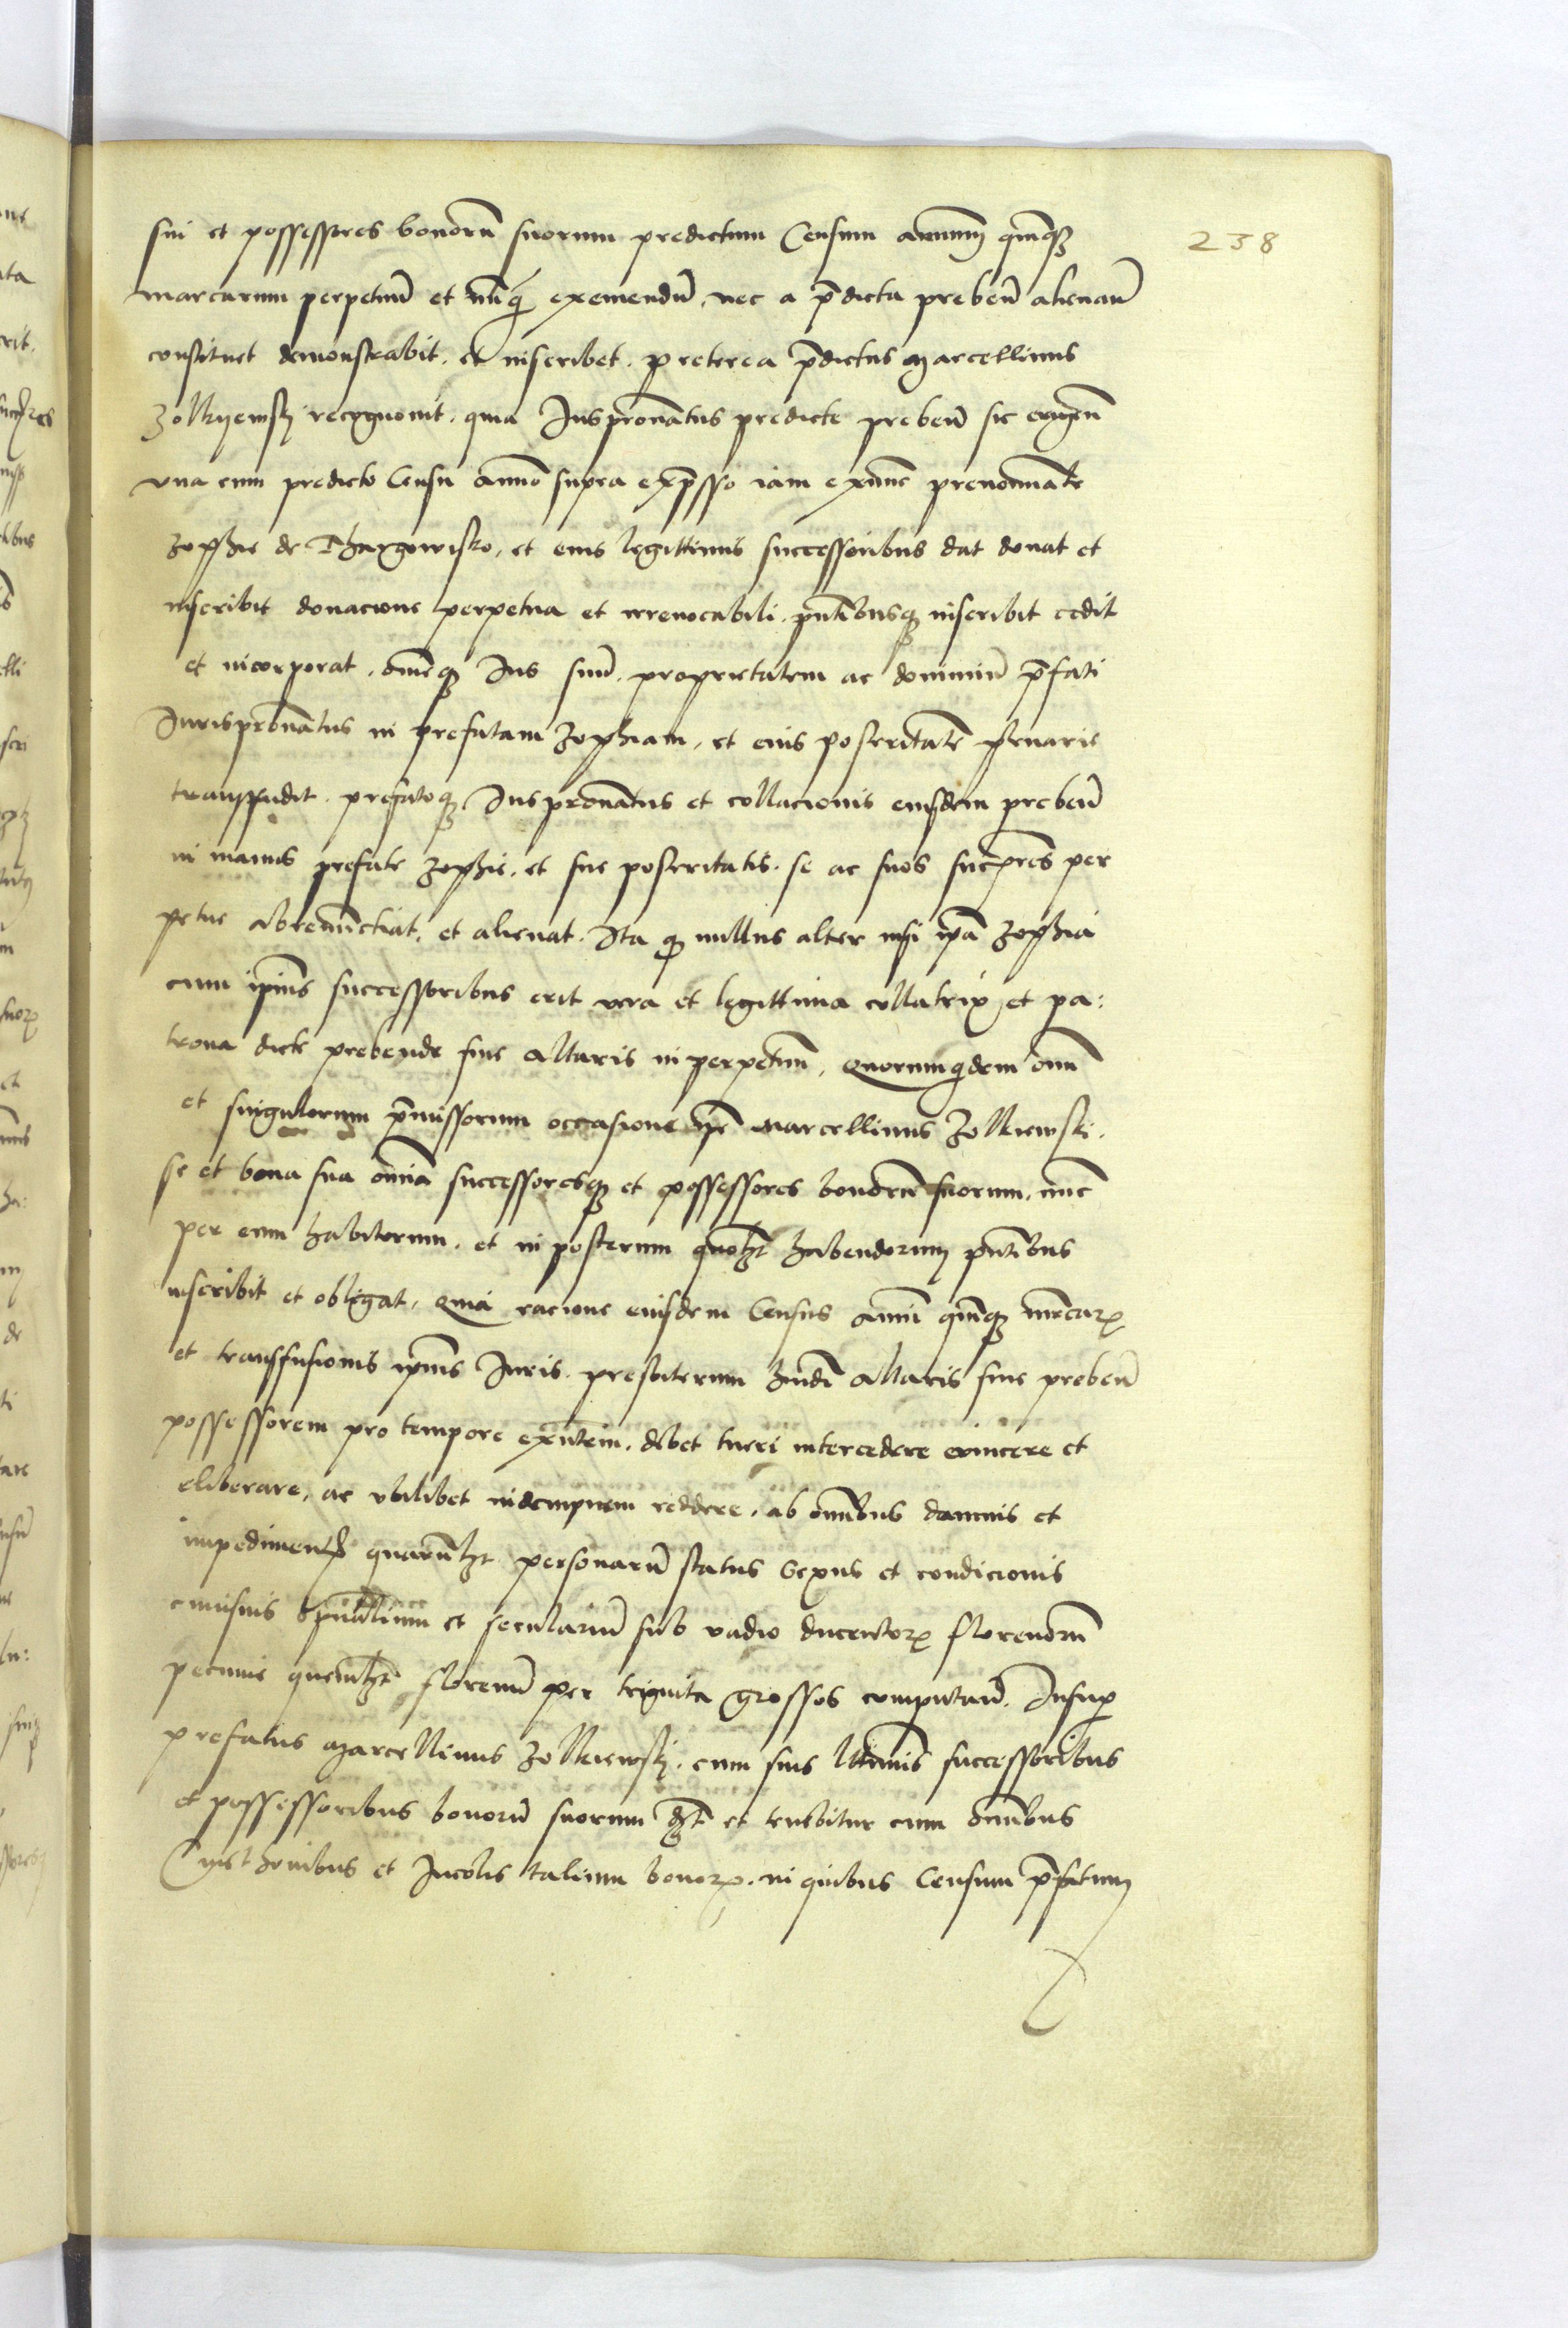 238
sui et possessores bonorū suorum predictum Censum annuum quīqʒ
marcarum perpetuū et nūqʒ exemendū, nec a p̄dicta prebeñ alienañ
constituet demonstrabit. et inscribet. preterea p̄dictus Marcellinus
Zolkyewsky recognouit. quia Juspronatus predicte prebeñ sic erigeñ
vna cum predicto Censu annuo supra exp̄sso iam extunc prenominate
Zophie de Thargowisko, et eius legittimis successoribus dat donat et
inscribit donacione perpetua et irreuocabili. pn̄tibusqʒ inscribit cedit
et incorporat. om̄eqʒ Jus suū. proprietatem ac dominiū p̄fati
Jurispronatus in prefatam Zophiam, et eius posteritatē plenarie
transfudit. prefatoqʒ Juspronatus et collacionis eiusdem prebeñ
in manus prefate Zophie. et sue posteritatis. se ac suos succ̄res per
petue abrenūctiat. et alienat. Ita qʒ nullus alter nisi ip̄a Zophia
cum ip̄ius successoribus erit vera et legittima collatrix et pa:
trona dicte prebende siue altaris in perpetuū, quorumquidem om̄
et singulorum p̄missorum occasione ip̄e Marcellinus Zolkiewski.
se et bona sua om̄ia successoresqʒ et possessores bonorū suorum. nūc
per eum habitorum. et in posterum quolꝫt habendorum pn̄tibus
inscribit et obligat, quia racione eiusdem Census annui quīqʒ mrcarꝝ
et transfusionis ip̄ius Juris. presbiterum hm̄oi altaris siue prebeñ
possessorem pro tempore exn̄tem. debet tueri intercedere euincere et
eliberare. ac vbilibet indempnem reddere. ab om̄ibus damnis et
impedimentis quarūlꝫt personarū status sexus et condicionis
cuiusuis sp̄ualium et seculariū sub vadio ducentorꝝ florenorū
pecunie quemlꝫt florenū per triginta grossos computañ. Insuꝑ
prefatus Marcellinus Zolkiewsky. cum suis ltt̄imis successoribus
et possessoribus bonorū suorum dꝫt et tenebitur cum om̄ibus
Cmethonibus et Incolis talium bonorꝝ. in quibus Censum p̄fatum